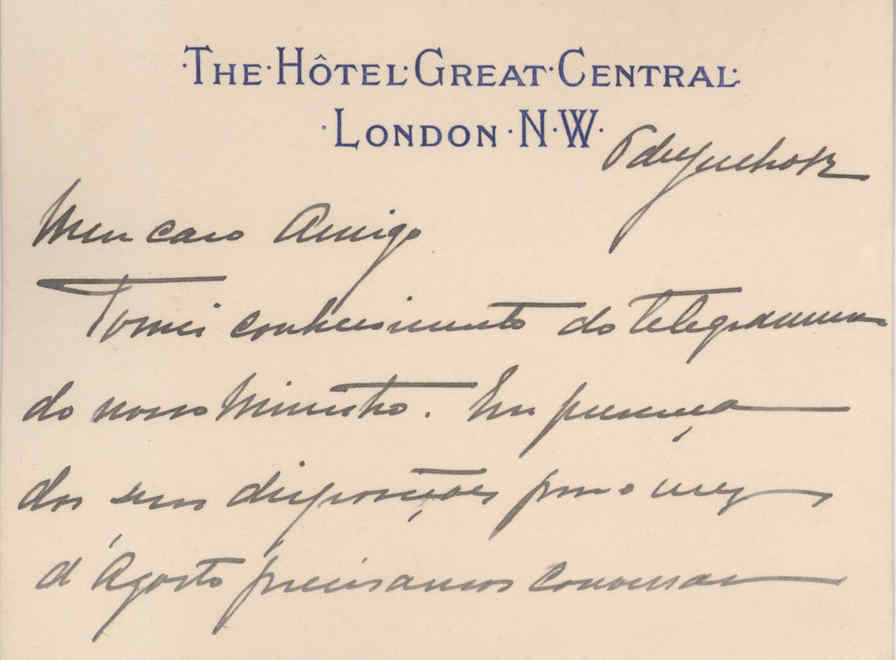 ·THE·HÔTEL·GREAT·CENTRAL·
·LONDON·N·W·
Meu caro Amigo
Tomei conhecimento do telegramma
do nosso Ministro. Em presença
das suas disposições para o mez
d'Agosto precisamos conversar